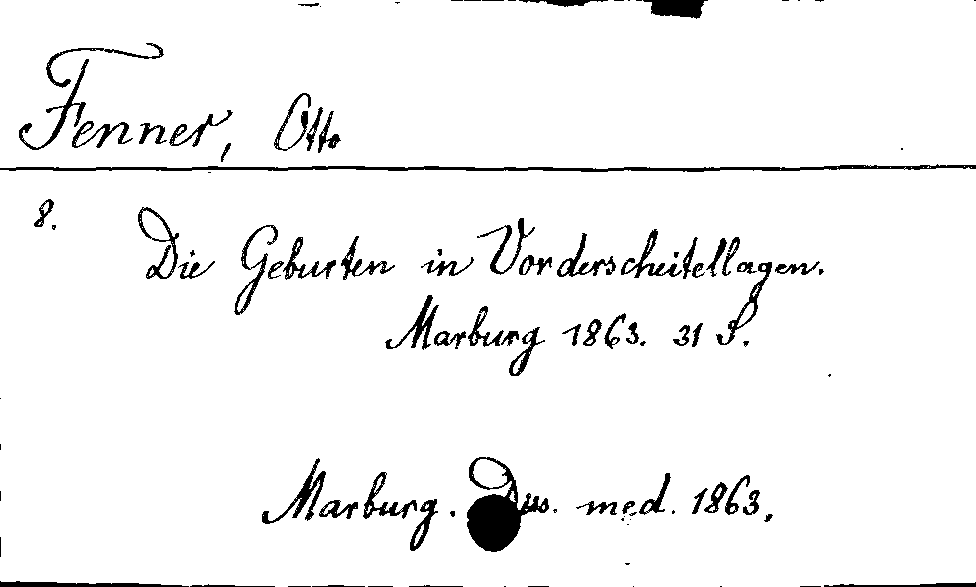 Fenner, Otto
8.
Die Geburten in Vorderscheitellagen.
Marburg 1863. 31 S.
Marburg. Diss. med. 1863.